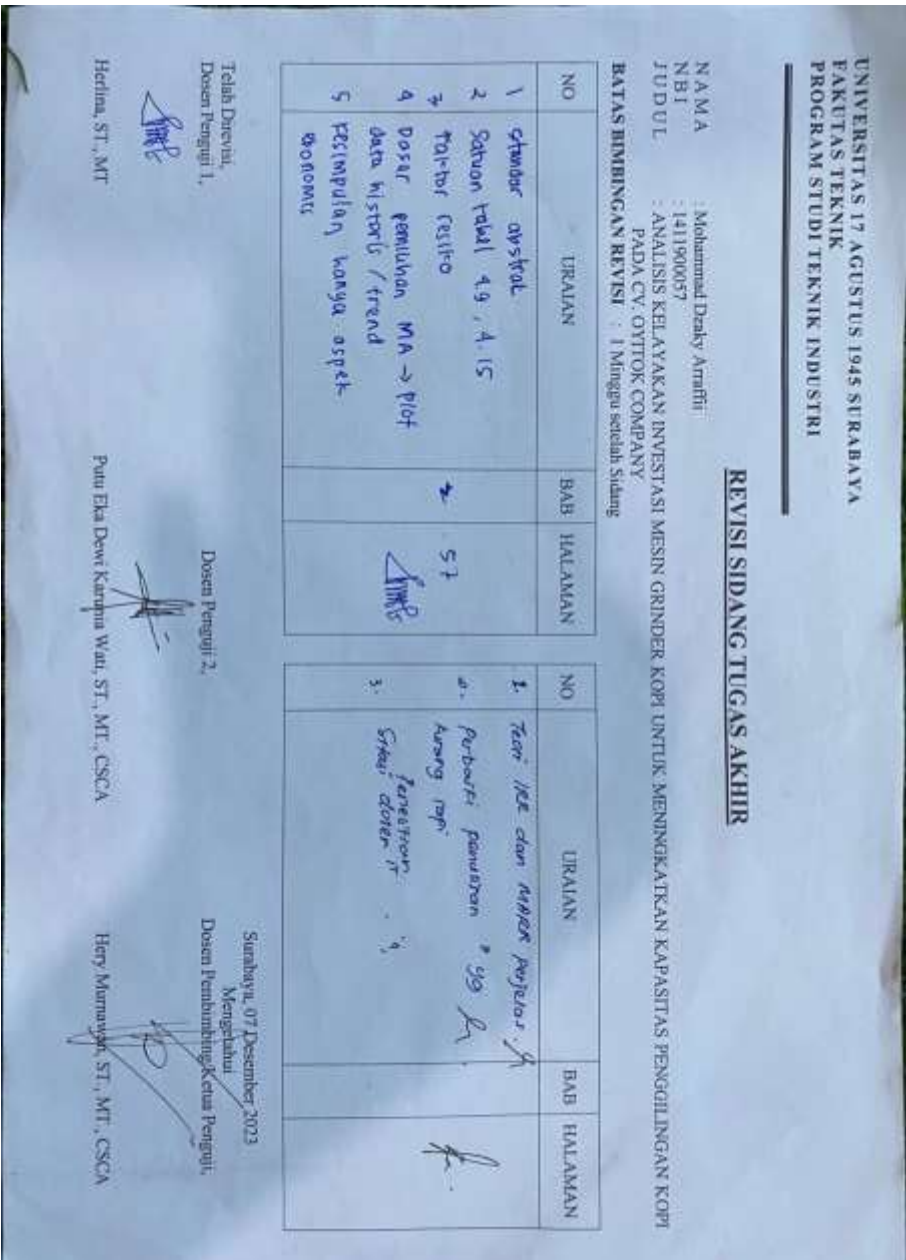 UNIVERSITAS 17 AGUSTUS 1945 SURABAYA
FAKUTAS TEKNIK
PROGRAM STUDI TEKNIK INDUSTRI
REVISI SIDANG TUGAS AKHIR
NAMA : Mohammad Dzaky Arraffii
NBI : 1411900057
JUDUL : ANALISIS KELAYAKAN INVESTASI MESIN GRINDER KOPI UNTUK MENINGKATKAN KAPASITAS PENGGILINGAN KOPI
PADA CV. OYITOK COMPANY
BATAS BIMBINGAN REVISI : 1 Minggu setelah Sidang
NO URAIAN BAB HALAMAN
1 standar abstrak
2 Satuan tabel 4.9, 4.15
3 faktor resiko 2 57
4 Dasar pemilihan MA → plot
data historis / trend
5 kesimpulan hanya aspek
ekonomis
NO URAIAN BAB HALAMAN
1. Teori IRR dan MARR perjelas
2. perbaiki penulisan " yg
kurang rapi
3. Penelitian
Sitasi dosen it
Surabaya, 07 Desember 2023
Telah Direvisi, Mengetahui
Dosen Penguji 1, Dosen Penguji 2, Dosen Pembimbing/Ketua Penguji,
Herlina, ST., MT Putu Eka Dewi Karunia Wati, ST., MT., CSCA Hery Murnawan, ST., MT., CSCA